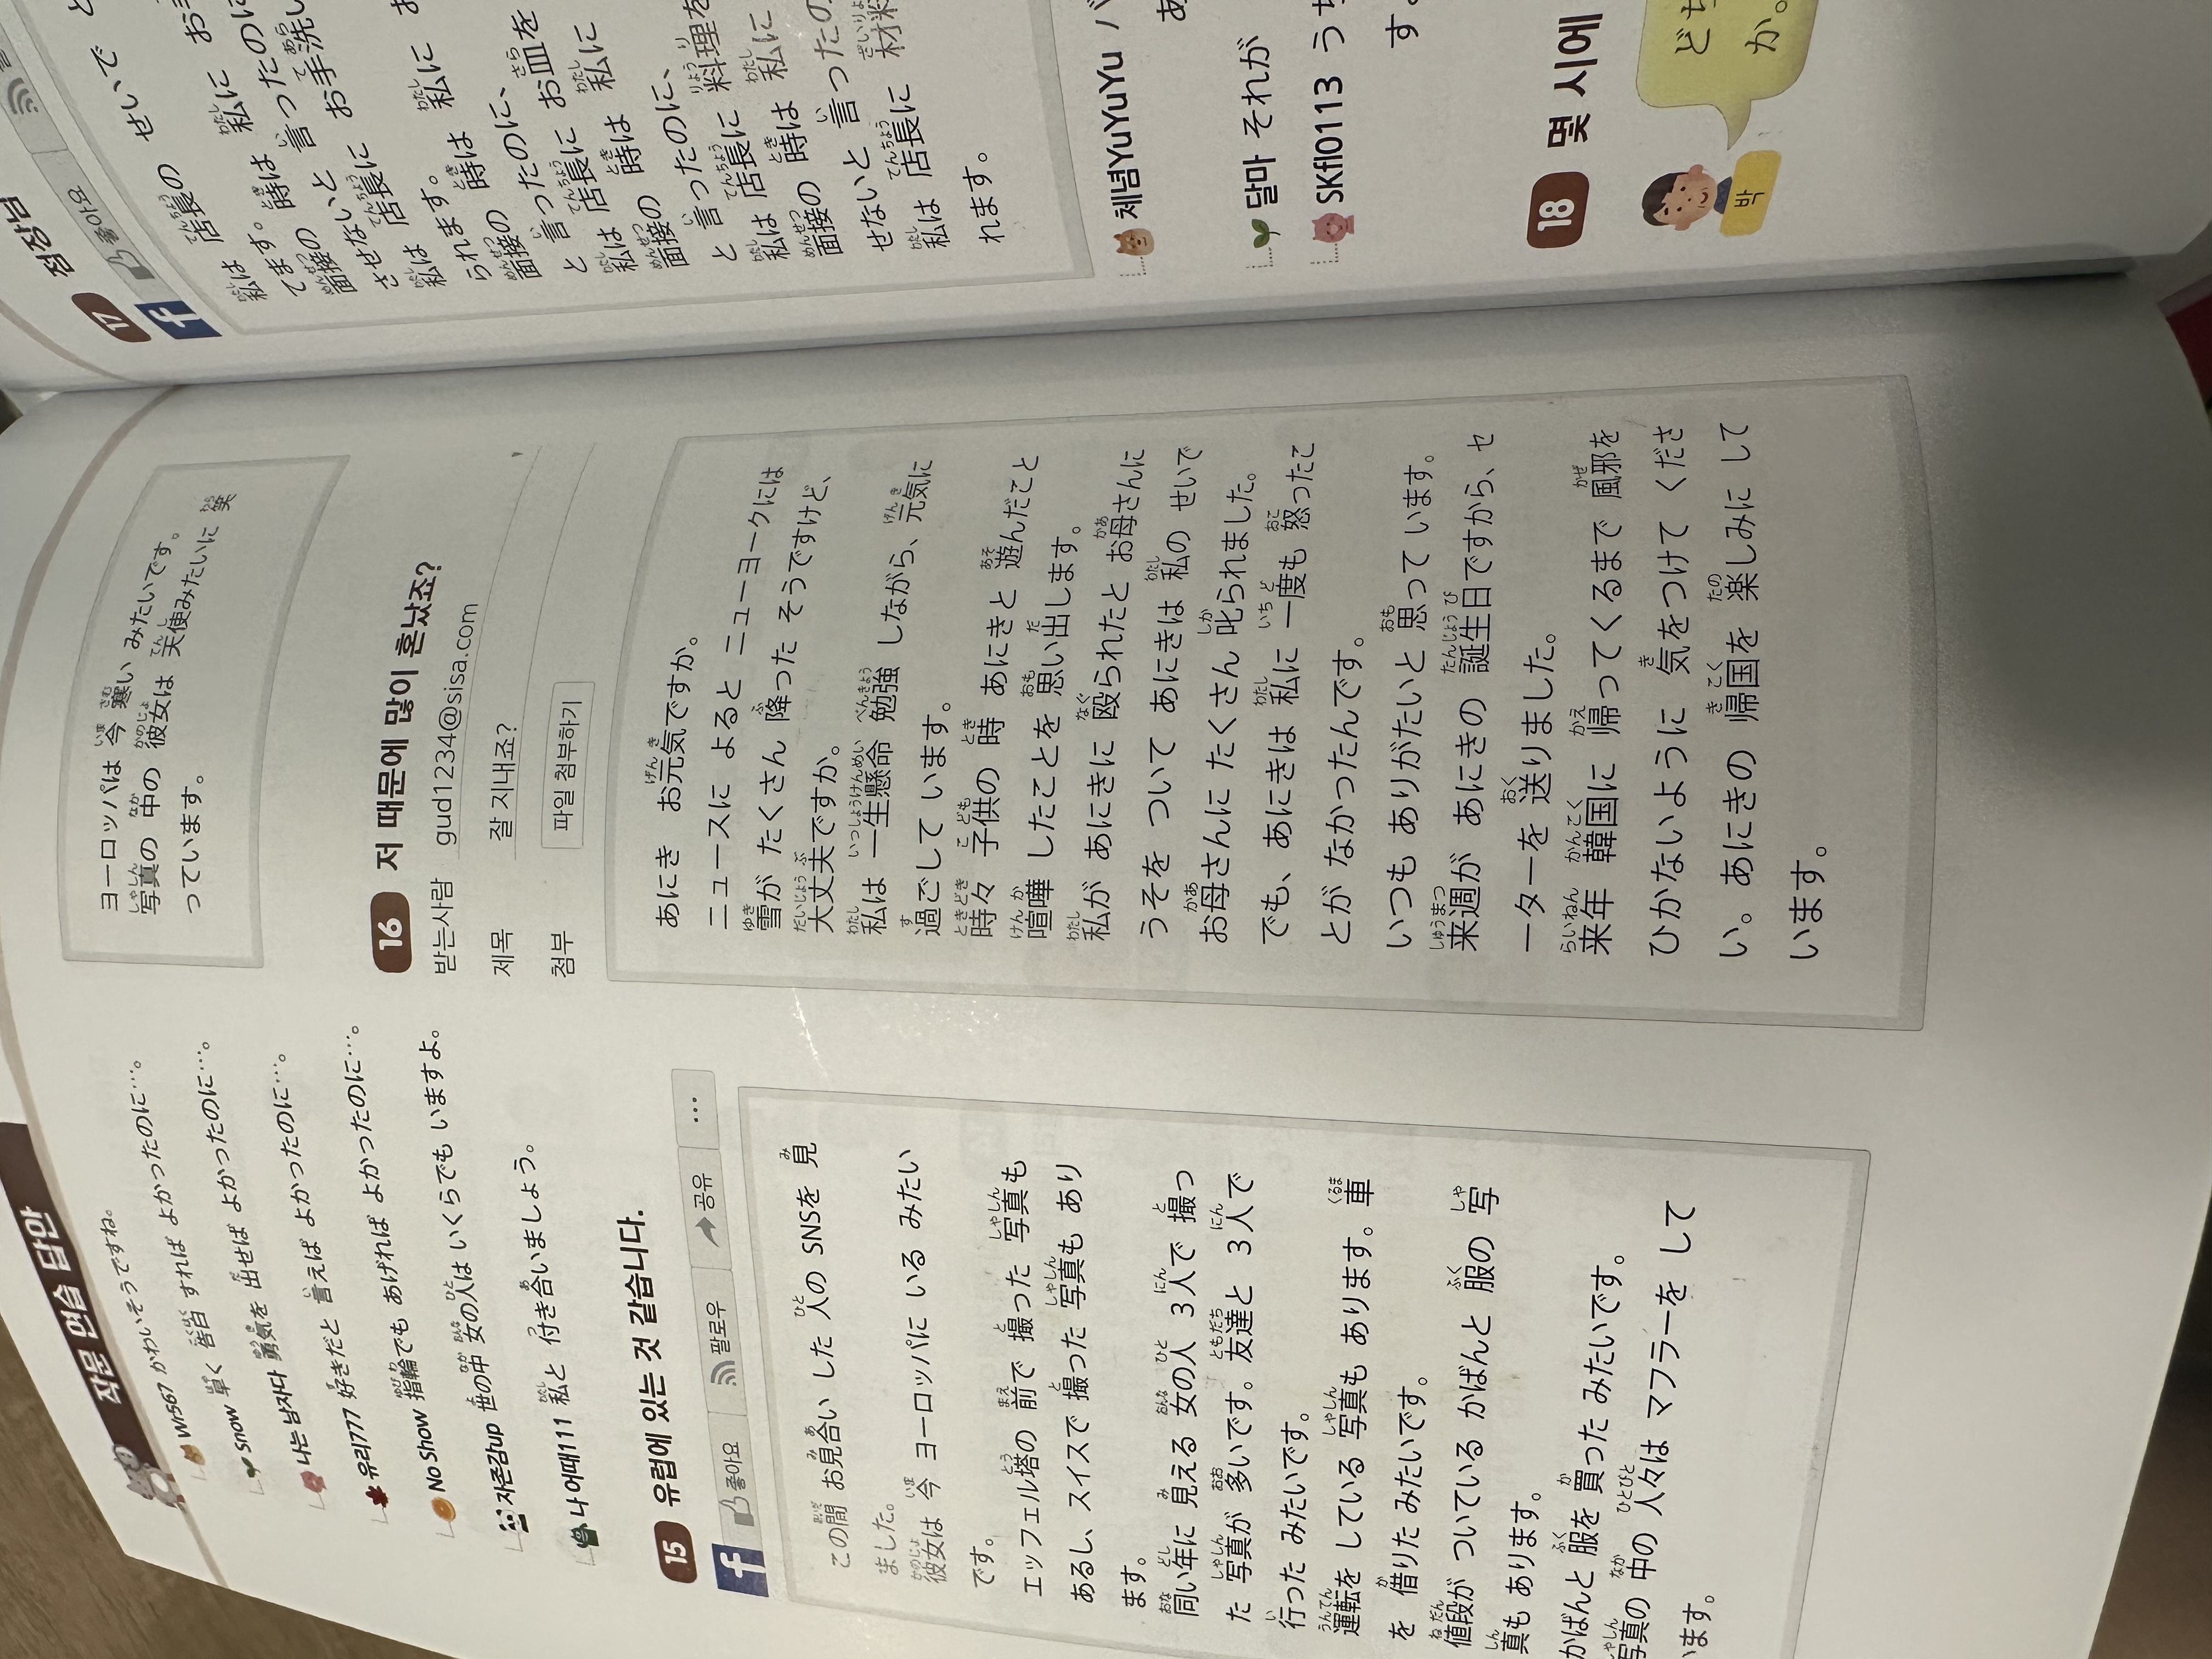 작문 연습 답안
Wr567 かわいそうですね。
早く 告白 すれば よかったのに…。
snow 勇気を 出せば よかったのに…。
나는 남자다 好きだと 言えば よかったのに…。
유리777 指輪でも あげれば よかったのに…。
No Show 世の中 女の人は いくらでも いますよ。
자존감up 私と 付き合いましょう。
나 어때111
15 유럽에 있는 것 같습니다.
f 좋아요 팔로우 공유 …
この間 お見合い した 人の SNSを 見
ました。
彼女は 今 ヨーロッパに いる みたい
です。
エッフェル塔の 前で 撮った 写真も
あるし、スイスで 撮った 写真も あり
ます。
同い年に 見える 女の人 3人で 撮っ
た 写真が 多いです。友達と 3人で
行った みたいです。
運転を している 写真も あります。車
を 借りた みたいです。
値段が ついている かばんと 服の 写
真も あります。
かばんと 服を 買った みたいです。
写真の 中の 人々は マフラーを して
います。
ヨーロッパは 今 寒い みたいです。
写真の 中の 彼女は 天使みたいに 笑
っています。
16 저 때문에 많이 혼났죠?
받는사람 gud1234@sisa.com
제목 잘 지내죠?
첨부 파일 첨부하기
あにき お元気ですか。
ニュースに よると ニューヨークには
雪が たくさん 降った そうですけど、
大丈夫ですか。
私は 一生懸命 勉強 しながら、元気に
過ごして います。
時々 子供の 時 あにきと 遊んだこと
喧嘩 したことを 思い出します。
私が あにきに 殴られたと お母さんに
うそを ついて あにきは 私の せいで
お母さんに たくさん 叱られました。
でも、あにきは 私に 一度も 怒ったこ
とが なかったんです。
いつも ありがたいと 思って います。
来週が あにきの 誕生日ですから、セ
ーターを 送りました。
来年 韓国に 帰ってくるまで 風邪を
ひかないように 気をつけて くださ
い。あにきの 帰国を 楽しみに して
います。
17 점장님
f 좋아요
店長の せいで と
私は 私に お
てます。
面接の 時は 言ったのに
させないと お手洗
私は 店長に 私に お
られます。
面接の 時は 私に
と 言ったのに、
私は 店長に お皿を
面接の 時は 私に
と 言ったのに、
私は 店長に 料理を
面接の 時は 私に
せないと 言ったの
私は 店長に 材料
れます。
체념YuYuYu バ
あ
달마 それが
SKfl0113 うち
す。
18 몇 시에
박
どち
か。